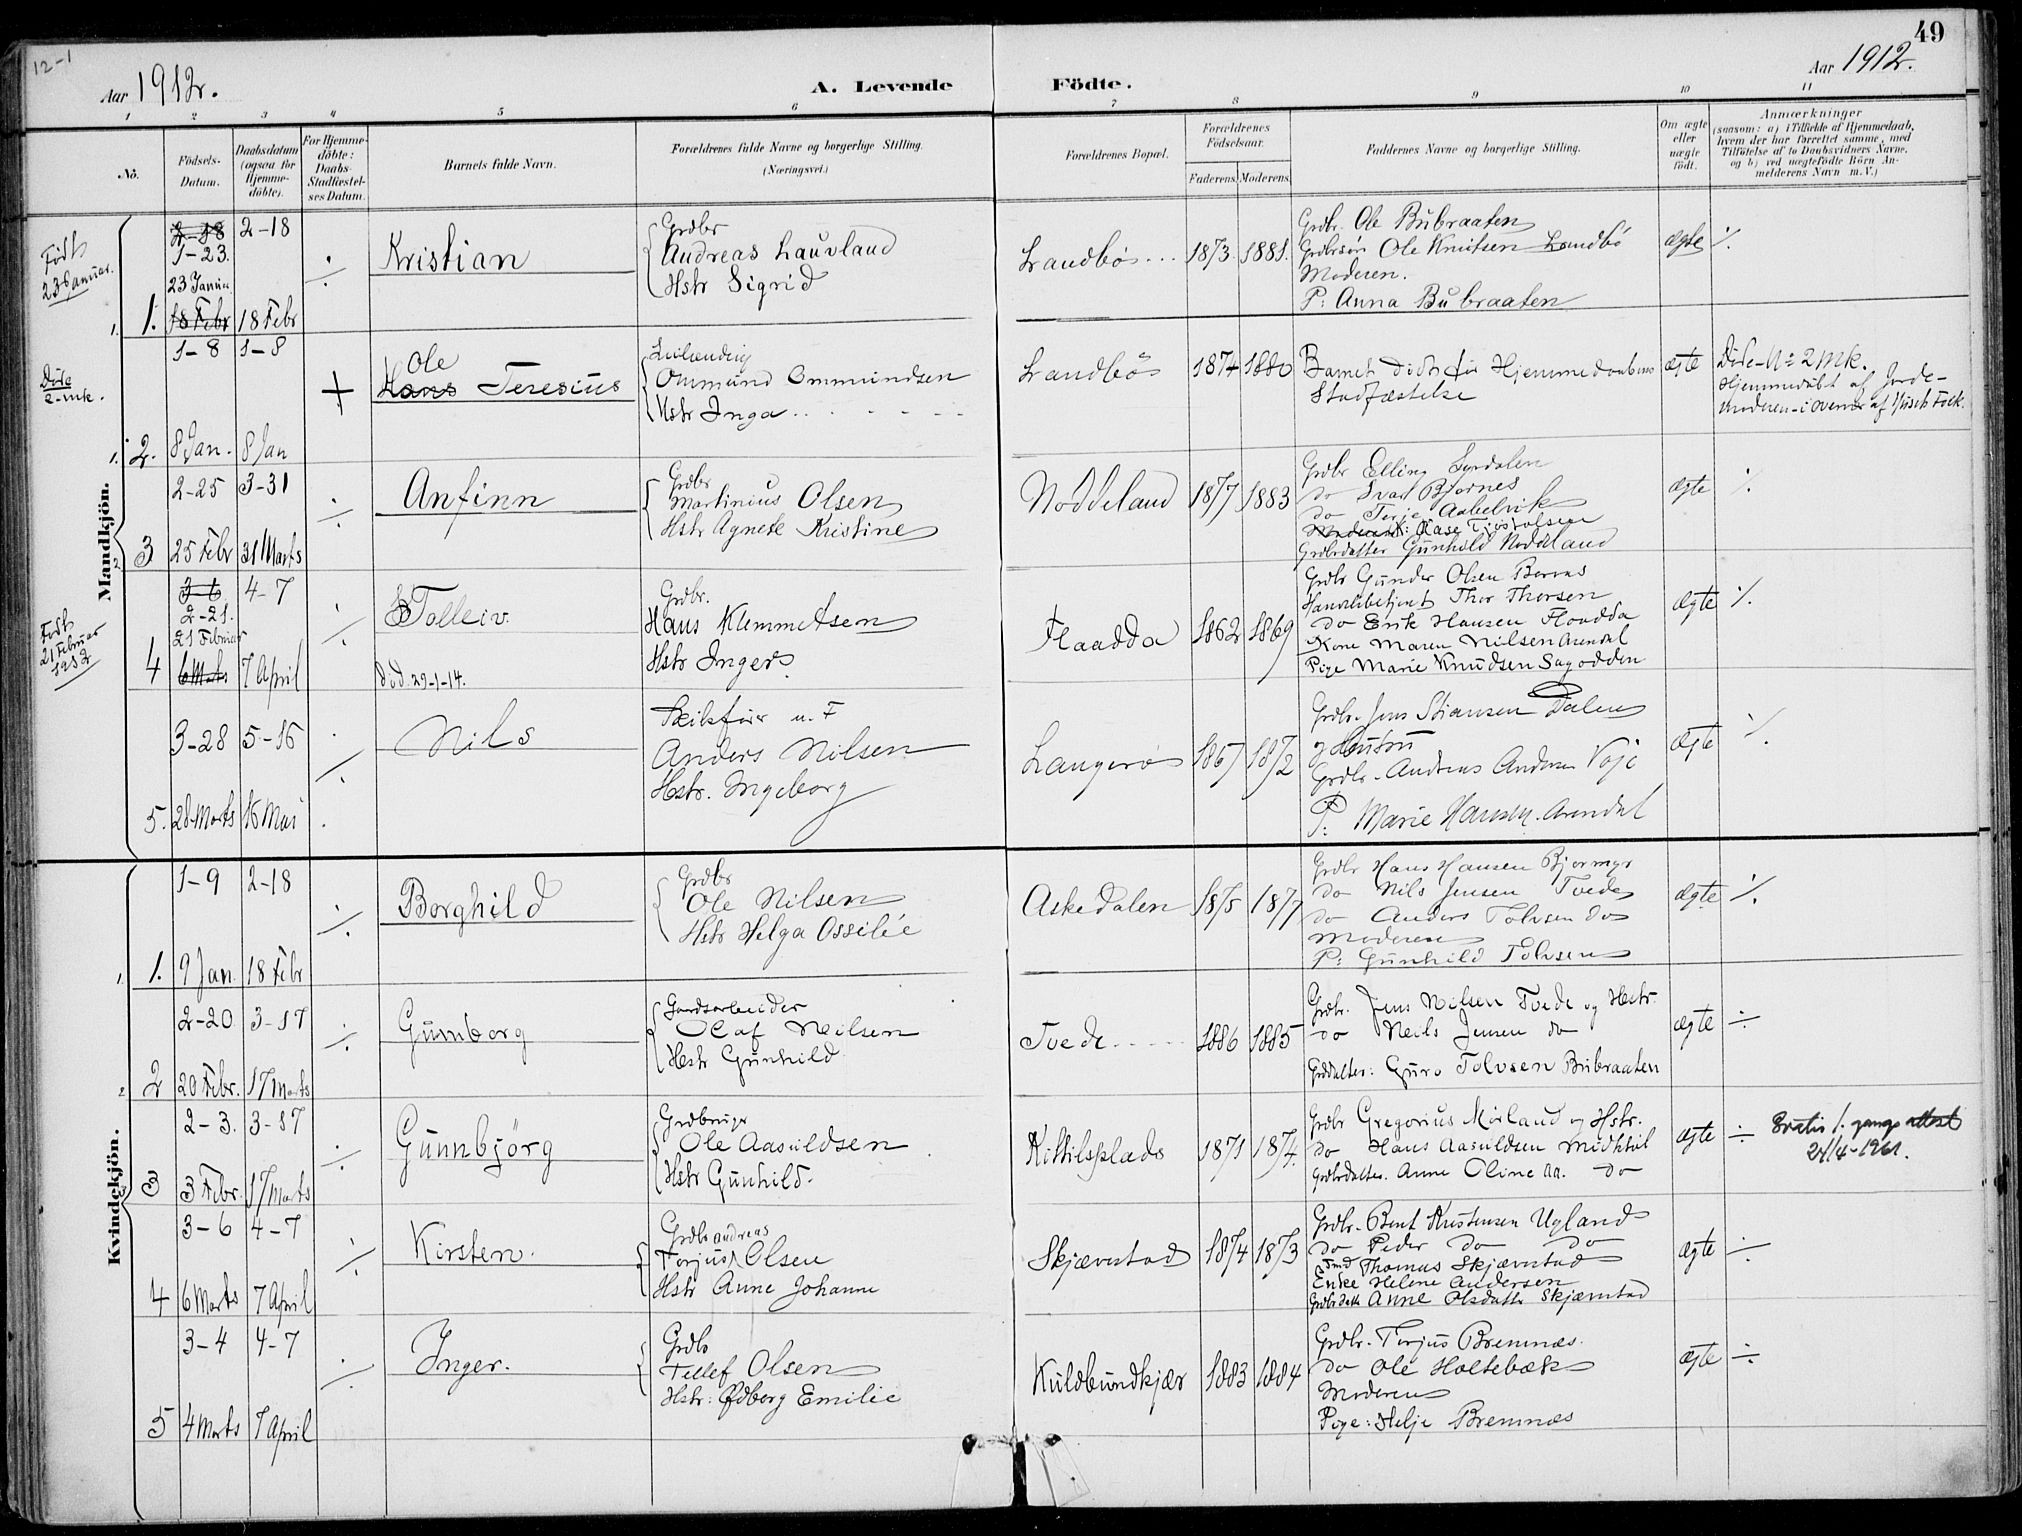 49
12-1
Aar 1912.
A. Levende
Födte.
Aar 1912.
1 2 3 4 5 6 7 8 9 10 11
No.
Födsels-
Datum.
Daabsdatum
(ogsaa for
Hjemme-
döbte).
For Hjemme-
döbte:
Daabs-
Stadfæstel-
ses Datum.
Barnets fulde Navn.
Forældrenes fulde Navne og borgerlige Stilling.
(Næringsvei.)
Forældrenes Bopæl.
Forældrenes
Födselsaar.
Faderens. Moderens.
Faddernes Navne og borgerlige Stilling.
Om ægte
eller
uægte
født.
Anmærkninger
(saasom: a) i Tilfælde af Hjemmedaab,
hvem der har forrettet samme, med
Tilföielse af to Daabsvidners Navne,
og b) ved uægtefödte Börn An-
melderens Navn m. V.)
Mandkjön.
Født
23 Januar.
1.
2-18
1-23.
23 Januar
18 Febr
2-18
18 Febr
Kristian
Grdbr
Andreas Lauvland
Hstr Sigrid
Landbö
1873 1881.
Grdbr. Ole Bubraaten
Grdbrsön Ole Knutsen Landbö
Moderen.
P: Anna Bubraaten
ægte
2.
1-8
8 Jan.
1-8
8 Jan
Ole
Hans Teresius
Leilænding
Ommund Ommundsen
Hstr Inga
Landbö
1874 1880
Barnet död för Hjemmedaabens
Stadfæstelse
ægte
Döde-No 2 Mk.
Hjemmedöbt af Jorde-
moderen
3
2-25
25 Febr
3-31
31 Marts
Anfinn
Grdbr
Martinius Olsen
Hstr Agnete Kristine
Noddeland
1877 1883
Grdbr Elling
do Bjornes
do Terje
Grdbrdatter Gunhild Noddeland
ægte
Født
21 Februar
1912
4
3-6
2-21.
21 Februar
6 Marts
4-7
7 April
Tolleiv
död. 29-1-14.
Grdbr.
Hans Klemmetsen
Hstr Inger
Flaadda
1862 1869
Grdbr Gunder Olsen
Handelsbetjent Thor Thorsen
do Erik Hansen Flaadda
Kone Maren Nilsen Arendal
Pige Marie Knudsen Sagodden
ægte
5.
3-28
28 Marts
5-16
16 Mai
Nils
Anders Nilsen
Hstr. Ingeborg
Langerö
1867 1872
Grdbr. Jens Dalen
og Hustru
Grdbr. Andreas Andersen Voje
P: Marie Hansen. Arendal
ægte
Kvindekjön.
1.
1-9
9 Jan.
2-18
18 Febr
Borghild
Grdbr
Ole Nilsen
Hstr Helga Ossilie
Askedalen
1875 1877
Grdbr Hans Hansen Bjormyr
do Nils Jensen Tvede
do Anders Tolvsen do
Moderen
P: Gunhild Tolvsen
ægte
2
2-20
20 Febr.
3-17
17 Marts
Gunborg
Gaardsarbeider
Olaf Neilsen
Hstr Gunhild
Tvede
1886 1885
Grdbr. Jens Nilsen Tvede og Hstr.
do Neils Jensen do
Grddatter: Guro Tolvsen Bubraaten
ægte
3
2-3.
3 Febr.
3-17
17 Marts
Gunnbjörg
Grdbruger
Ole Aasuldsen
Hstr Gunhild.
Kittilsplads
1871 1874.
Grdbr Gregorius Mörland og Hstr.
do Hans Aasuldsen
Grdbrdatter. Anne Oline Aa. do
ægte
Gratis 1. gangs attest
24/4-1961.
4
3-6
6 Marts
4-7
7 April
Kirsten.
Grdbr Andreas
Torjus Olsen
Hstr Anne Johanne
Skjævestad
1874 1873
Grdbr. Bent Kristensen Ugland
do Peder do do
Thomas Skjævestad
Enke Helene Andersen
Grdbrdatter Anne Olsdatter Skjævestad
ægte
5
3-4
4 Marts
4-7
7 April
Inger.
Grdbr
Tellef Olsen
Hstr: Ødborg Emilie
Kuldbundkjær
1883 1884
Grdbr. Terjus Bremnæs.
do Ole Holtebæk
Moderen
Pige: Helje Bremnæs
ægte